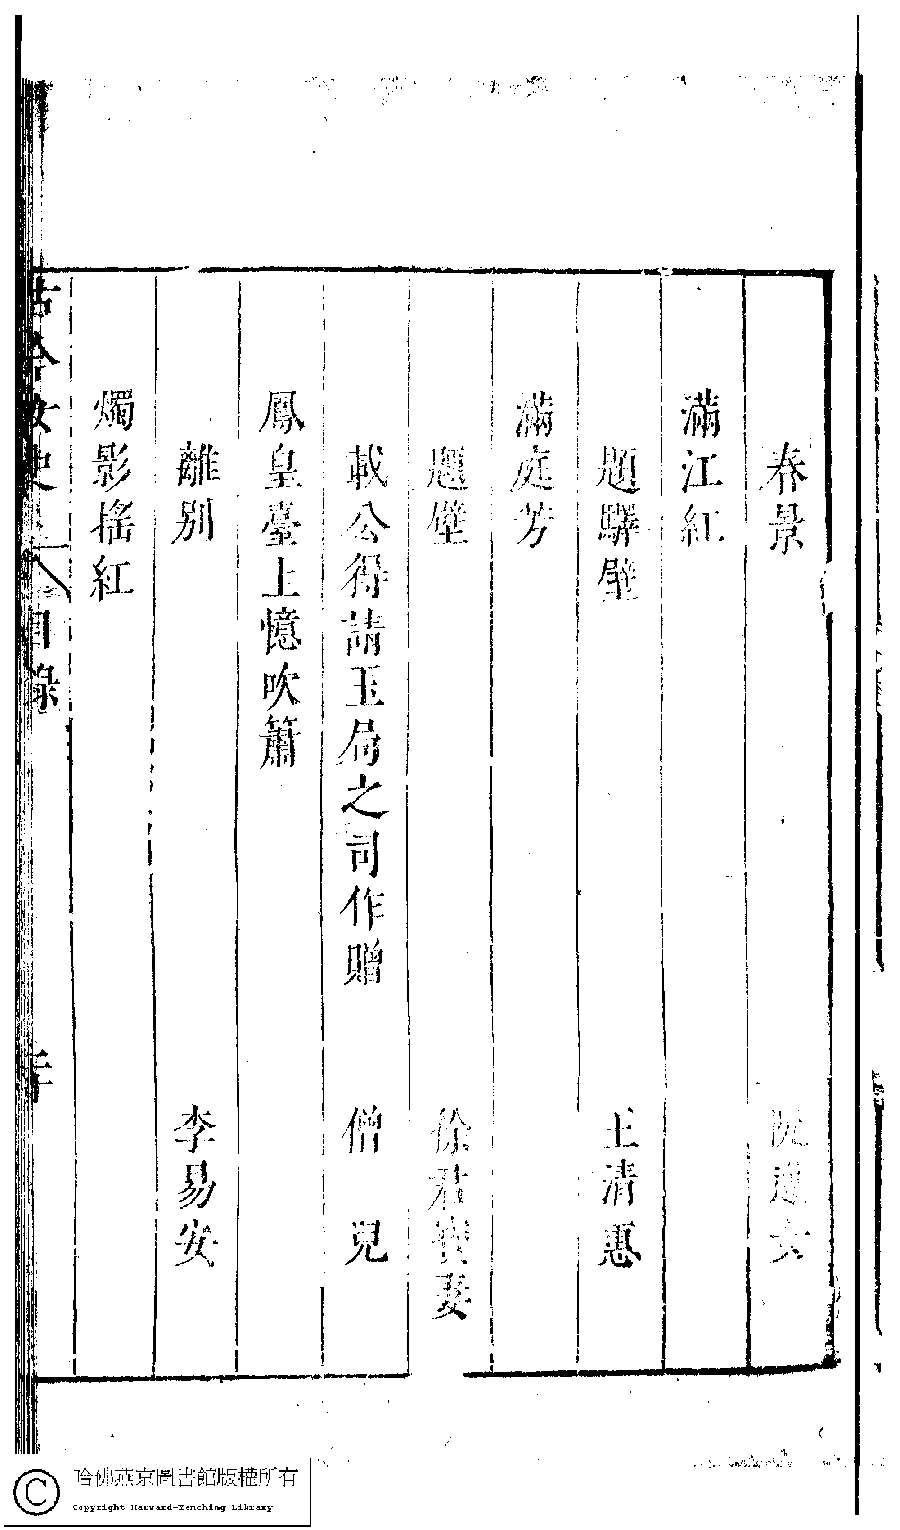 春景　阮逸女
滿江紅
題驛壁　王清惠
滿庭芳
題壁　徐君寶妻
載公得請玉局之司作贈　僧兒
鳳皇臺上憶吹簫
離別　李易安
燭影搖紅
古今女史　目錄
哈佛燕京圖書館版權所有
Copyright Harvard-Yenching Library